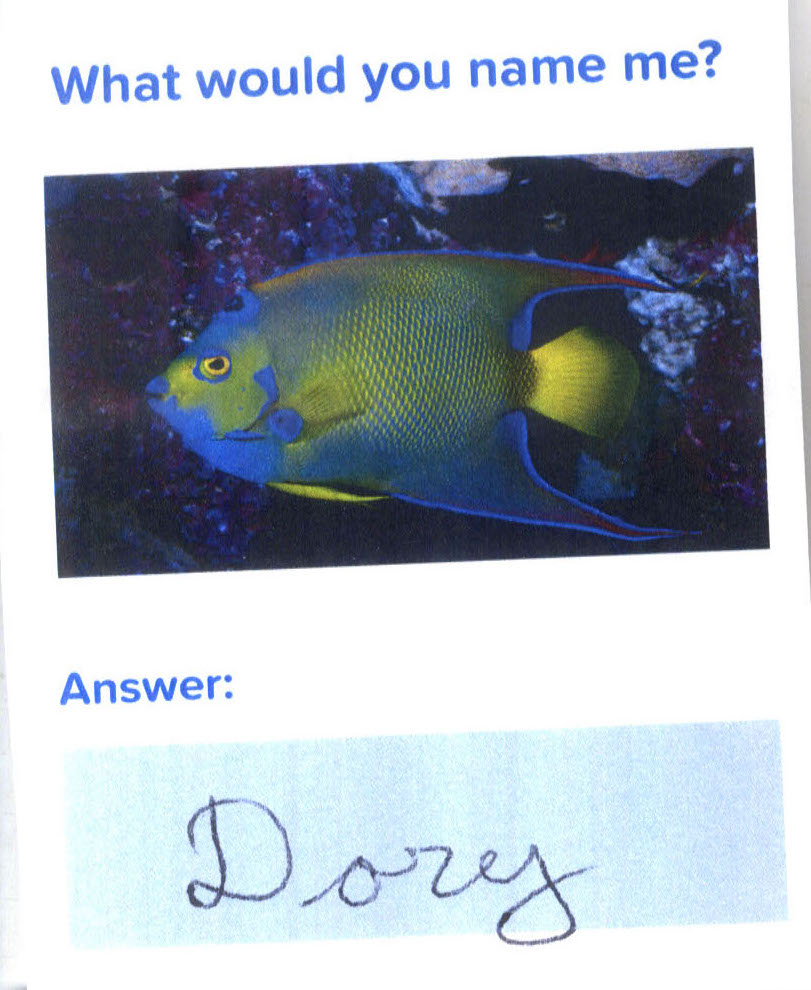 What would you name me?
Answer:
Dory